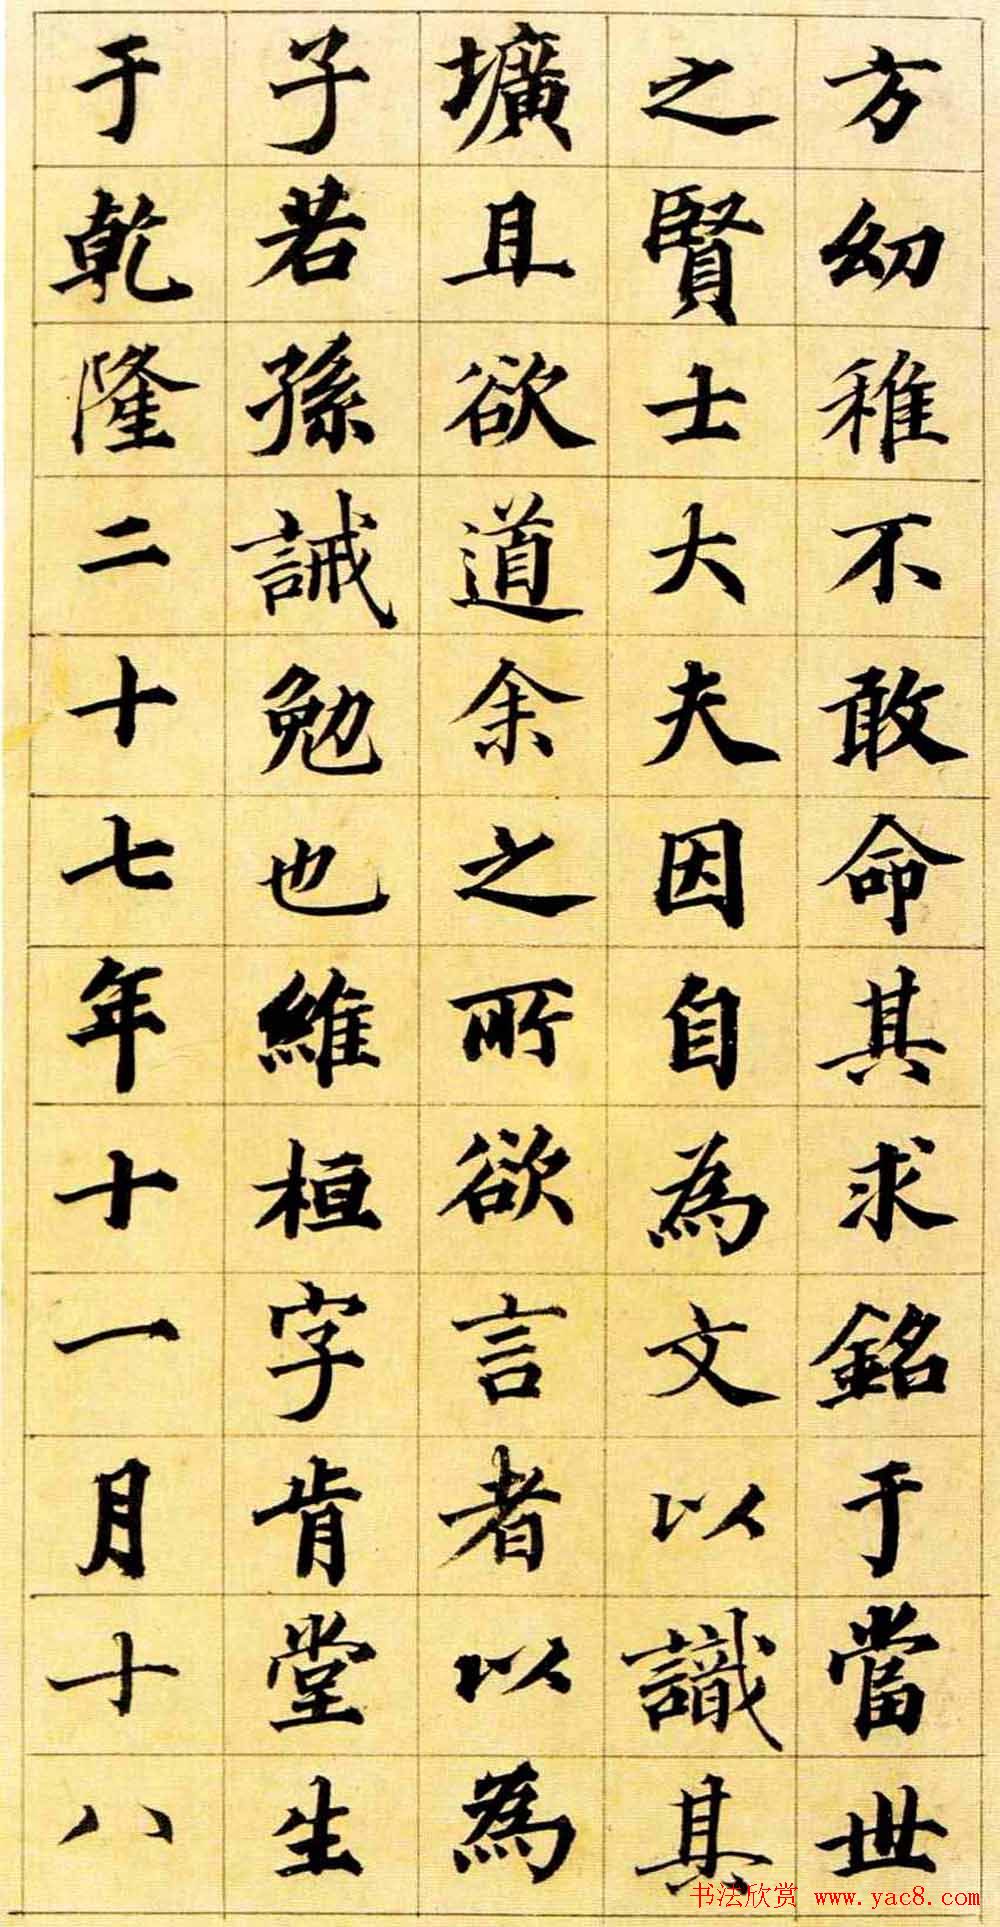 方幼稚不敢命其求銘于當世
之賢士大夫因自為文以識其
壙且欲道余之所欲言者以為
子若孫誡勉也維桓字肯堂生
于乾隆二十七年十一月十八
书法欣赏 www.yac8.com